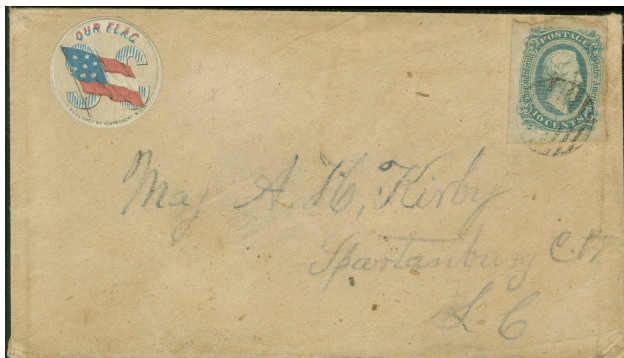 OUR FLAG
CS
POSTAGE
TEN CENTS
Maj A. H. Kirby
Spartanburg C.H.
S. C